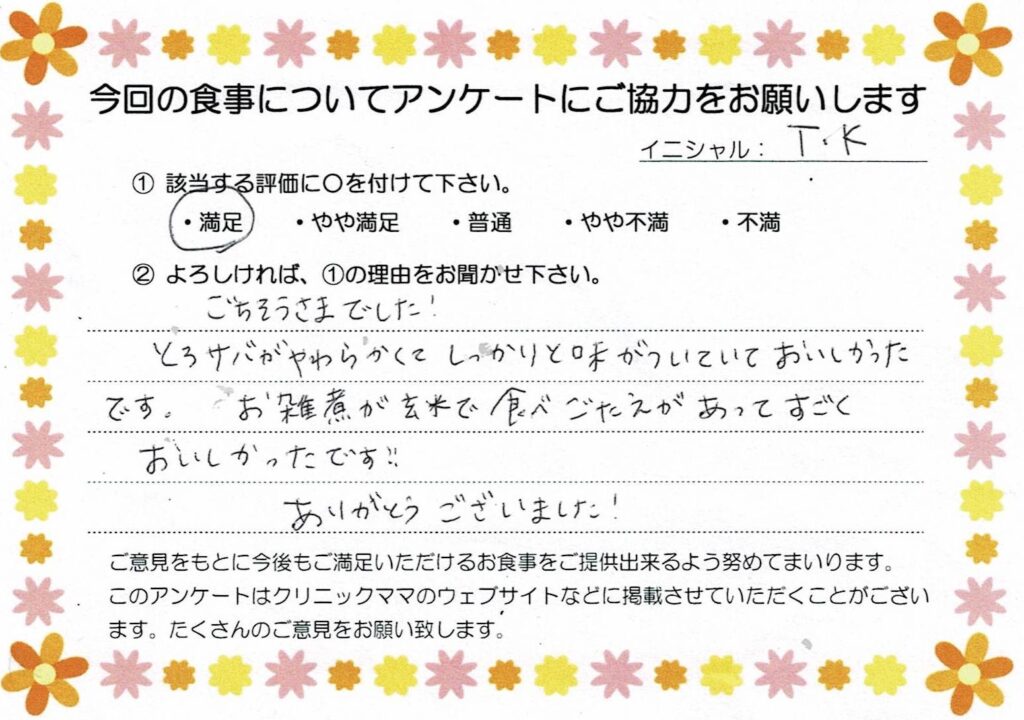 今回の食事についてアンケートにご協力をお願いします
イニシャル： T.K
① 該当する評価に〇を付けて下さい。
・満足 ・やや満足 ・普通 ・やや不満 ・不満
② よろしければ、①の理由をお聞かせ下さい。
ごちそうさまでした!
とろサバがやわらかくて しっかりと味がついていて おいしかった
です。 お雑煮が玄米で 食べごたえが あって すごく
おいしかったです!!
ありがとう ございました!
ご意見をもとに今後もご満足いただけるお食事をご提供出来るよう努めてまいります。
このアンケートはクリニックママのウェブサイトなどに掲載させていただくことがござい
ます。たくさんのご意見をお願い致します。